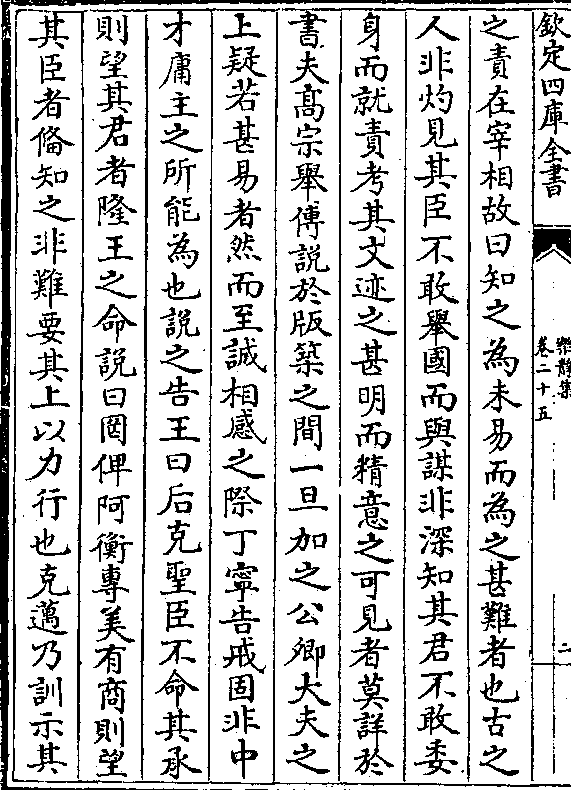 欽定四庫全書
樂靜集
卷二十五
二
之責在宰相故曰知之為未易而為之甚難者也古之
人非灼見其臣不敢舉國而與謀非深知其君不敢委
身而就責考其文迹之甚明而精意之可見者莫詳於
書夫髙宗舉傅説於版築之間一旦加之公卿大夫之
上疑若甚易者然而至誠相感之際丁寧告戒固非中
才庸主之所能為也説之告王曰后克聖臣不命其承
則望其君者隆王之命説曰罔俾阿衡專美有商則望
其臣者偹知之非難要其上以力行也克邁乃訓示其